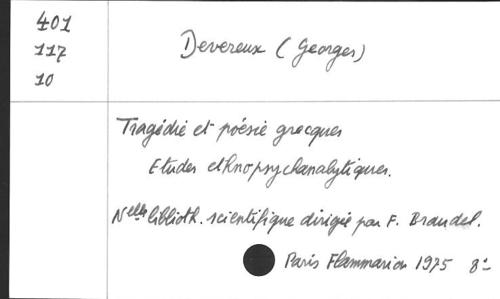 401
117
10
Devereux (Georges)
Tragédie et poésie grecques
Etudes ethnopsychanalytiques.
Nelle biblioth. scientifique dirigée par F. Braudel.
Paris Flammarion 1975 8°